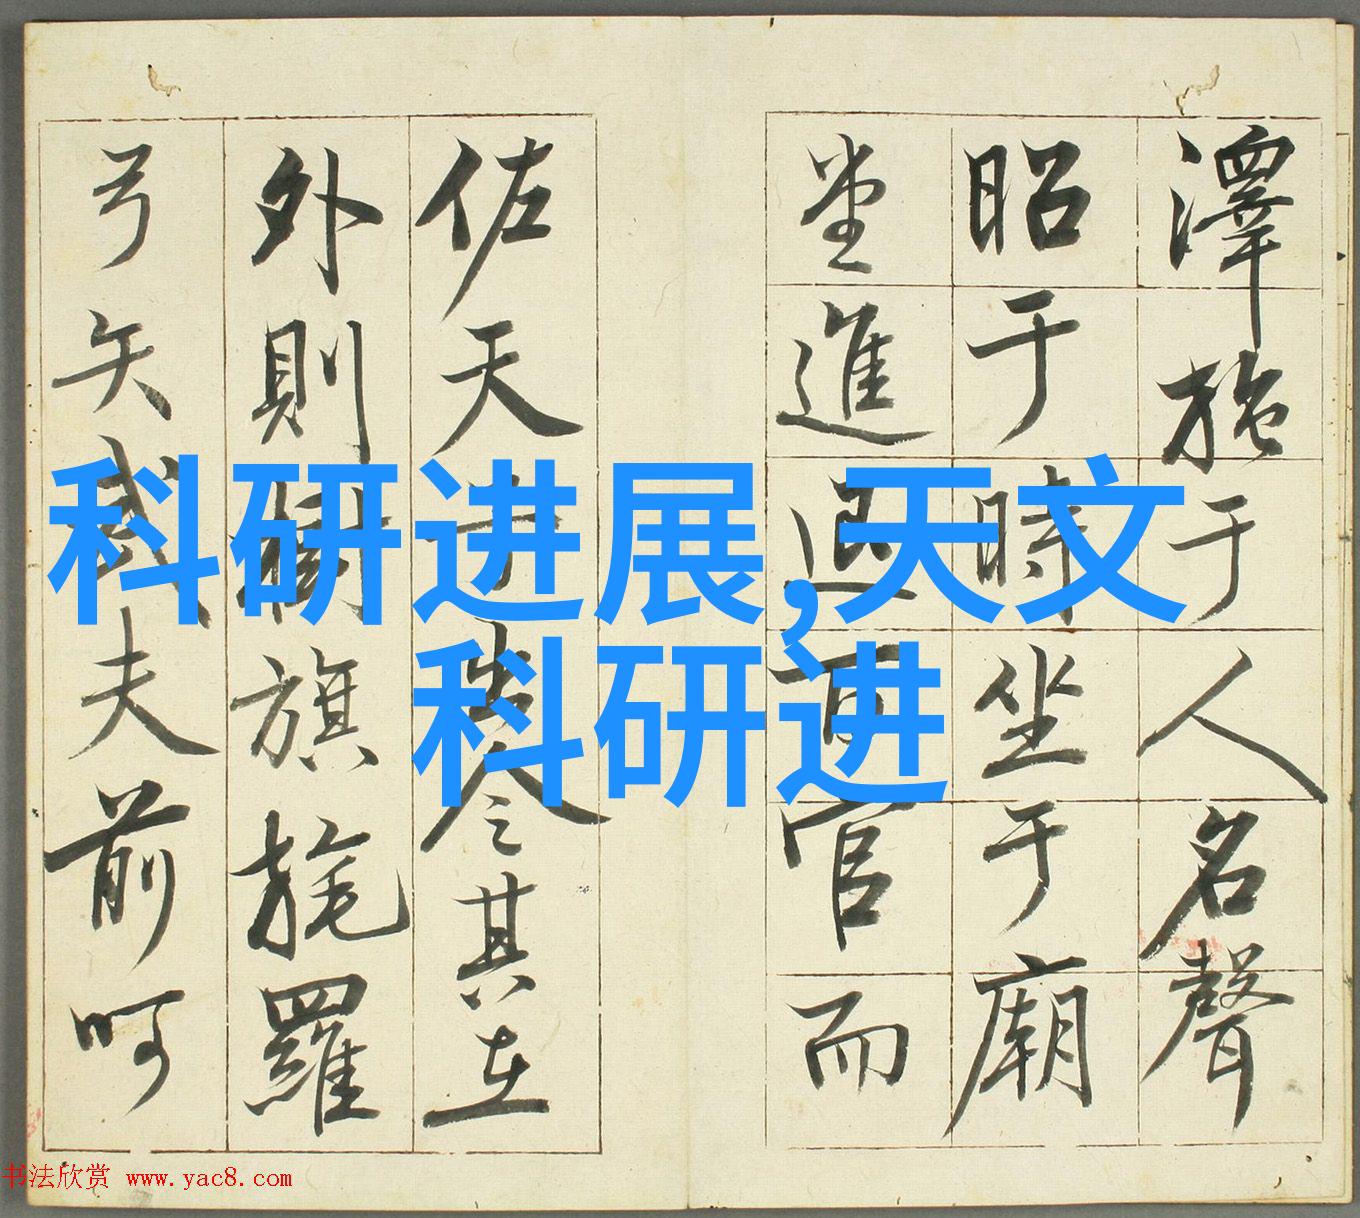 澤施于人名聲
昭于時坐于廟
堂進退百官而
佐天子出令其在
外則樹旗旄羅
弓矢武夫前呵
科研进展,天文
科研进
书法欣赏 www.yac8.com